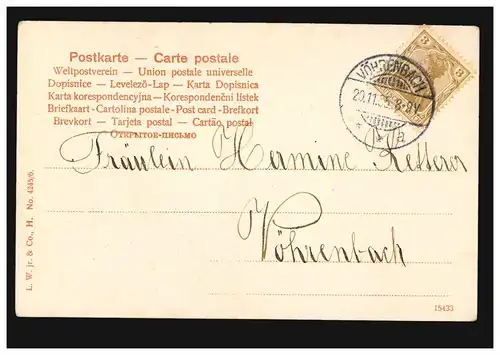 Postkarte — Carte postale
Weltpostverein — Union postale universelle
Dopisnice — Levelező-Lap — Karta Dopisnica
Karta korespondencyjna — Korespondenční lístek
Briefkaart - Cartolina postale - Post card - Brefkort
Brevkort — Tarjeta postal — Cartão postal
Открытое-письмо
3 3
VÖHRENBACH
8-9V.
* * a
Fräulein Hermine Ketterer
Vöhrenbach
L. W. jr. & Co., H. No. 4245/6.
15433